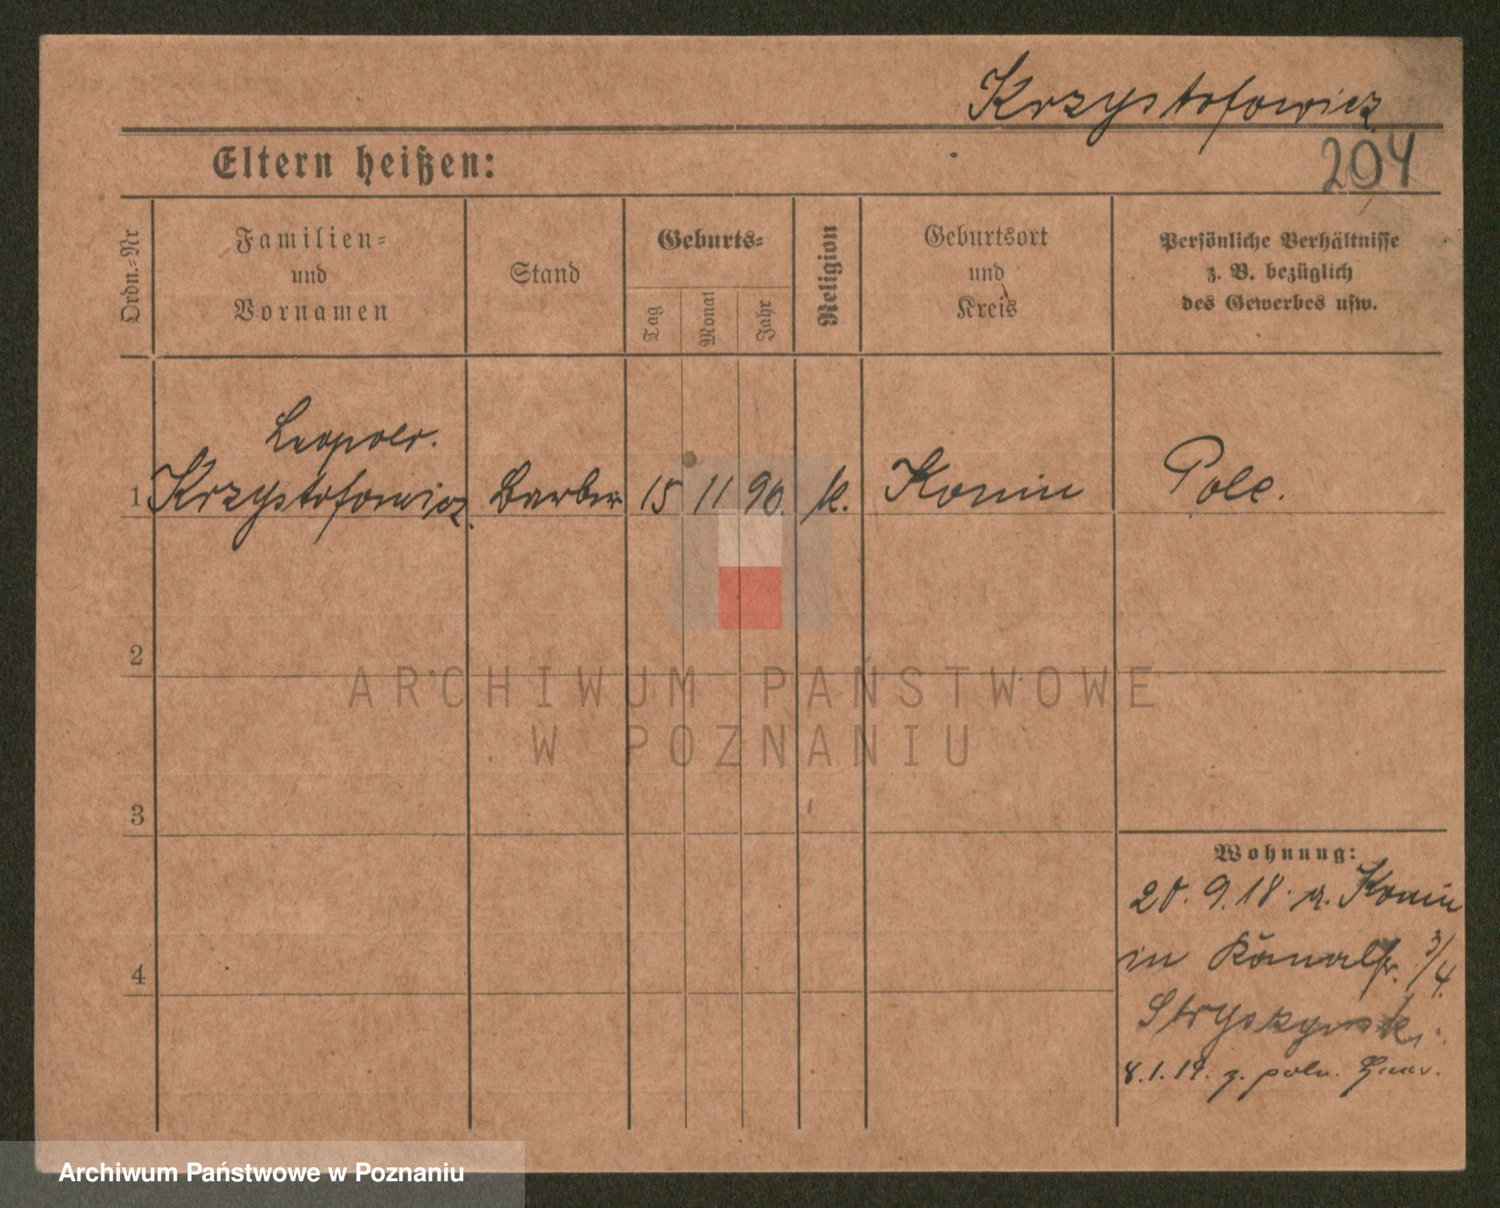 Krzystofowicz
204
Eltern heißen:
Ordn.-Nr
Familien-
und
Vornamen
Stand
Geburts-
Tag
Monat
Jahr
Religion
Geburtsort
und
Kreis
Persönliche Verhältnisse
z. B. bezüglich
des Gewerbes usw.
Leopold.
1 Krzystofowicz. Barbier 15 11 90. k. Konin Pole.
2
ARCHIWUM PAŃSTWOWE
W POZNANIU
3
Wohnung:
20. 9. 18. v. Konin
in Kanalstr. 3/4.
4
8. 1. 19. z. poln.
Archiwum Państwowe w Poznaniu